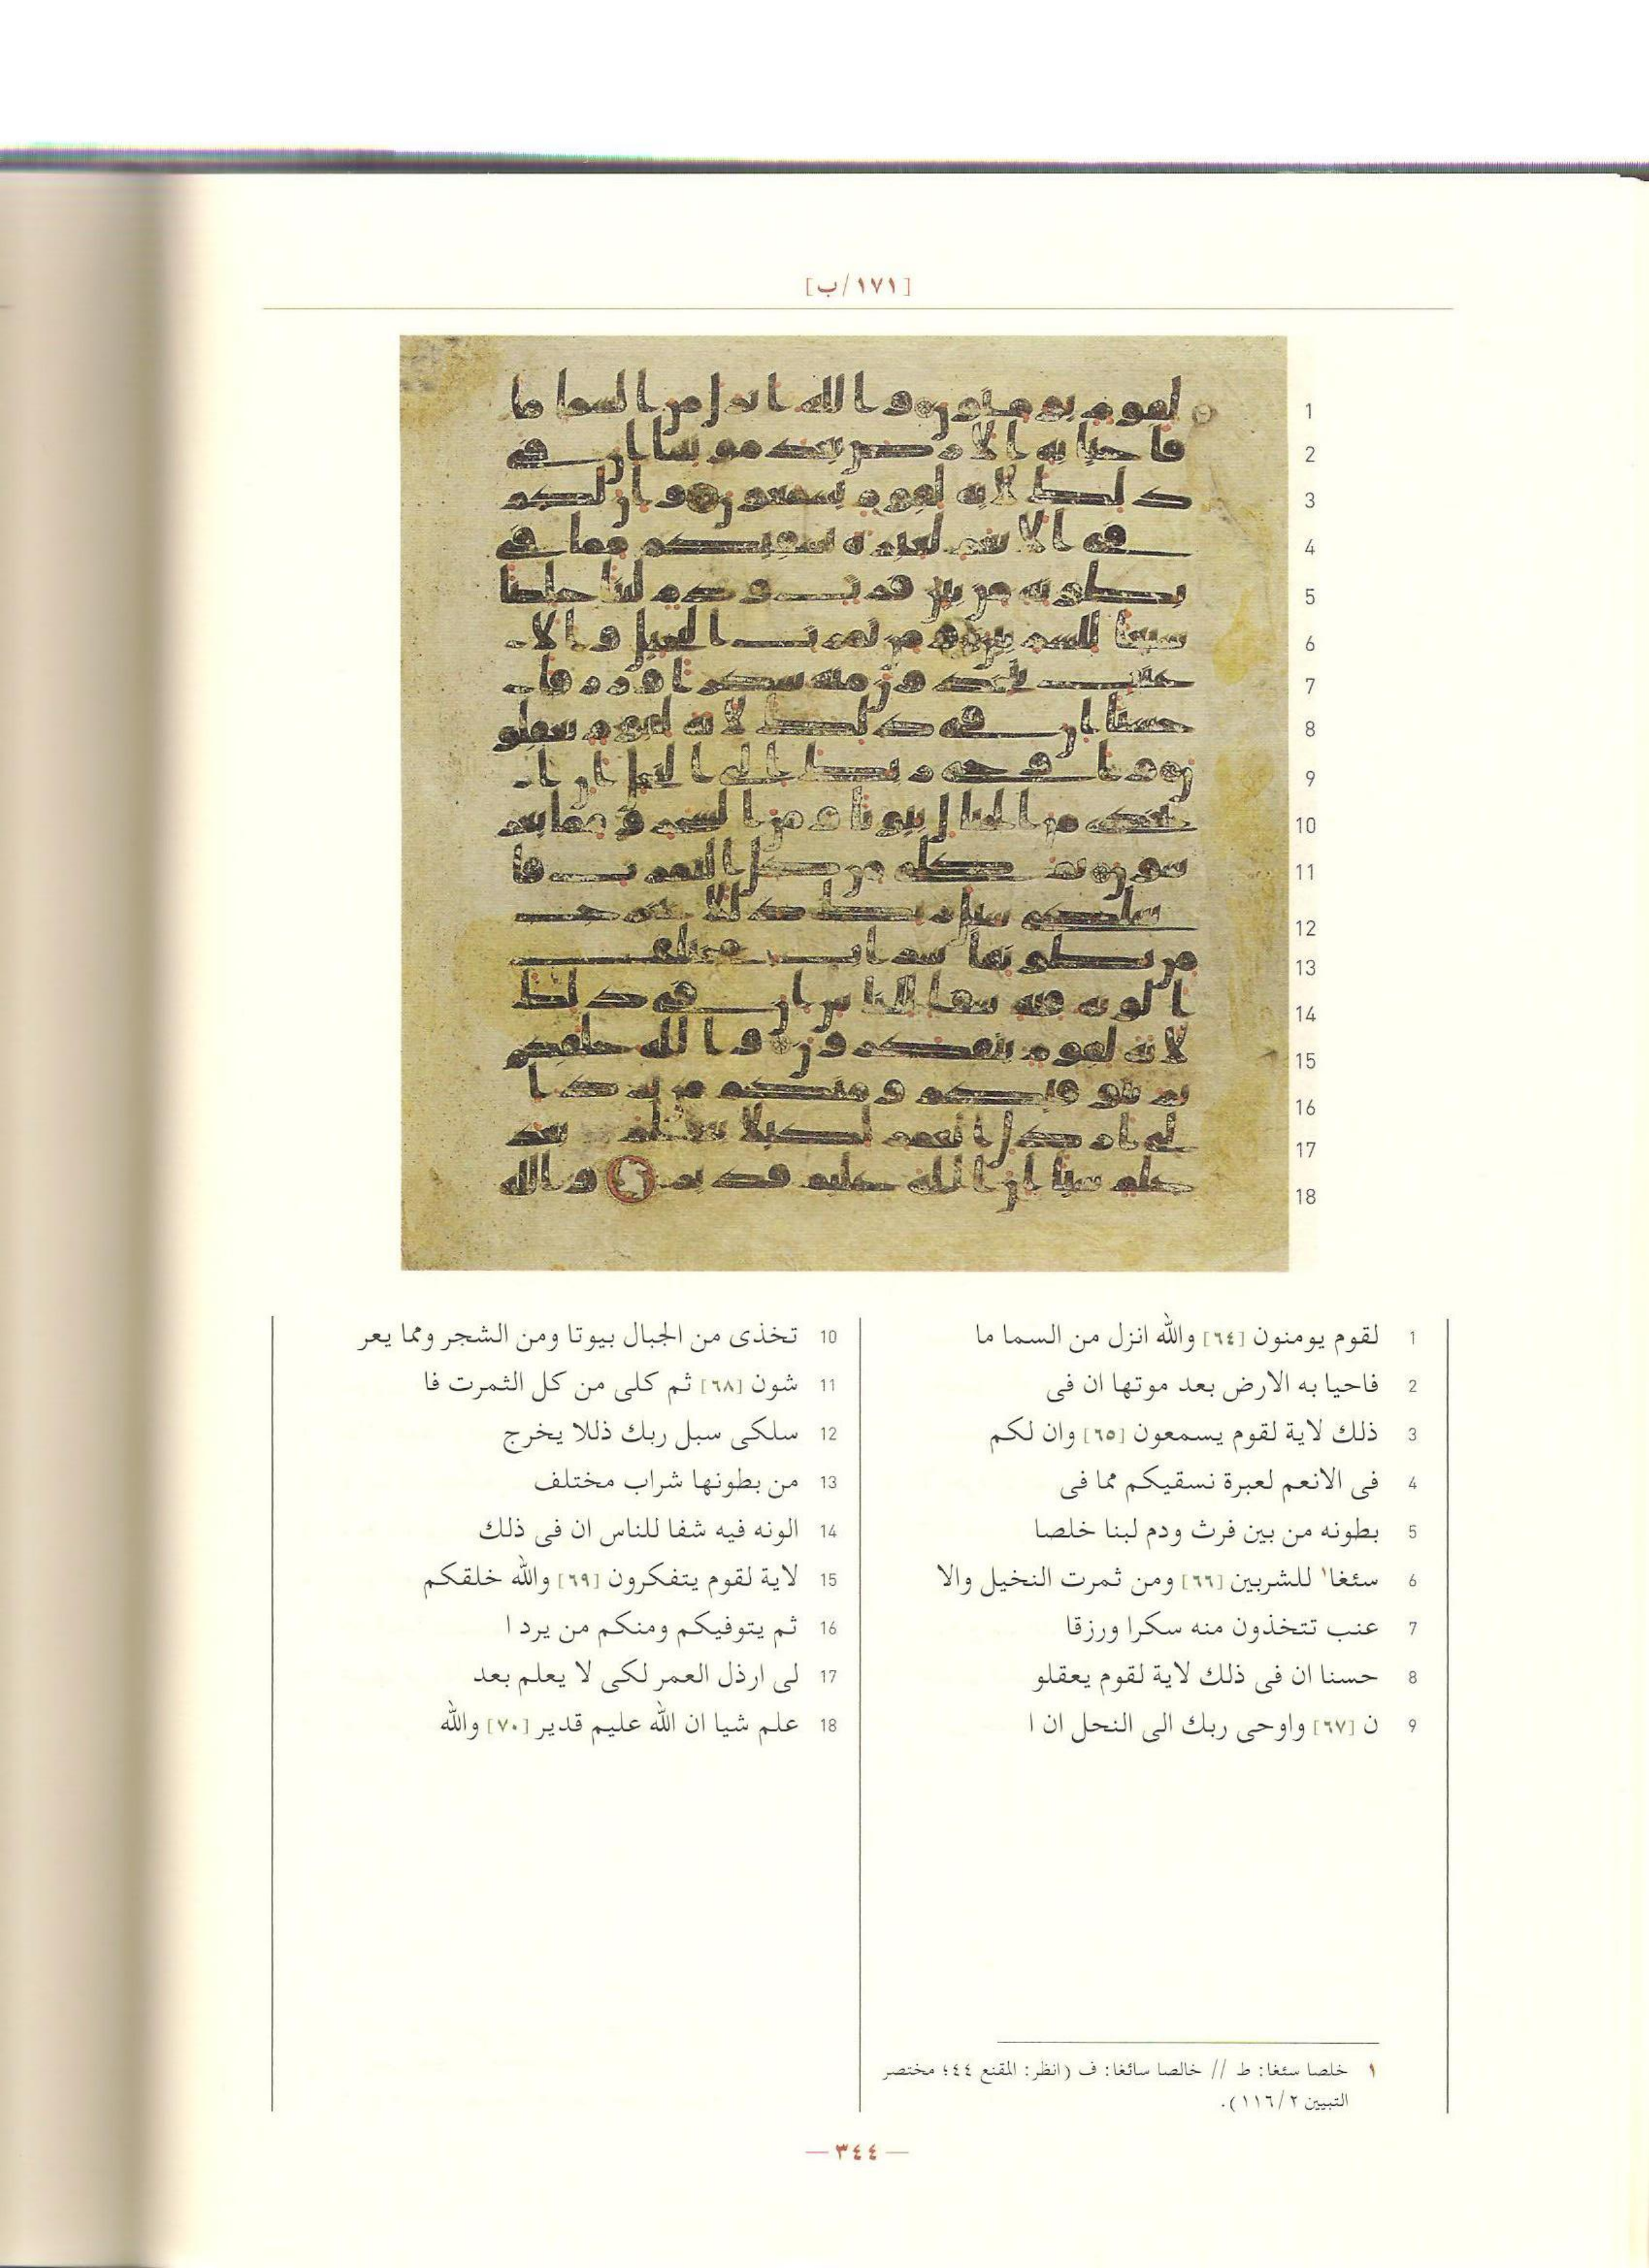 [١٧١/ب]
1 لقوم يومنون [٦٤] والله انزل من السما ما
2 فاحيا به الارض بعد موتها ان فى
3 ذلك لاية لقوم يسمعون [٦٥] وان لكم
4 فى الانعم لعبرة نسقيكم مما فى
5 بطونه من بين فرث ودم لبنا خلصا
6 سئغا١ للشربين [٦٦] ومن ثمرت النخيل والا
7 عنب تتخذون منه سكرا ورزقا
8 حسنا ان فى ذلك لاية لقوم يعقلو
9 ن [٦٧] واوحى ربك الى النحل ان ا
10 تخذى من الجبال بيوتا ومن الشجر ومما يعر
11 شون [٦٨] ثم كلى من كل الثمرت فا
12 سلكى سبل ربك ذللا يخرج
13 من بطونها شراب مختلف
14 الونه فيه شفا للناس ان فى ذلك
15 لاية لقوم يتفكرون [٦٩] والله خلقكم
16 ثم يتوفيكم ومنكم من يرد ا
17 لى ارذل العمر لكى لا يعلم بعد
18 علم شيا ان الله عليم قدير [٧٠] والله
١ خلصا سئغا: ط // خالصا سائغا: ف (انظر: المقنع ٤٤؛ مختصر
التبيين ١١٦/٢).
— ٣٤٤ —